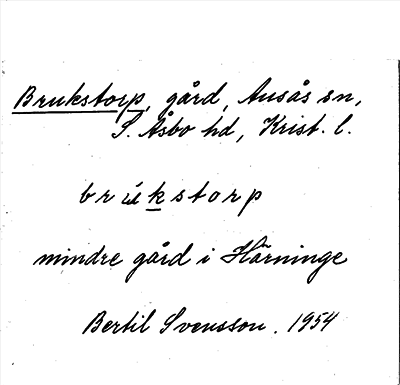 Brukstorp, gård, Ausås sn,
S. Åsbo hd, Krist. l.
brúkstorp
mindre gård i Härninge
Bertil Svensson. 1954